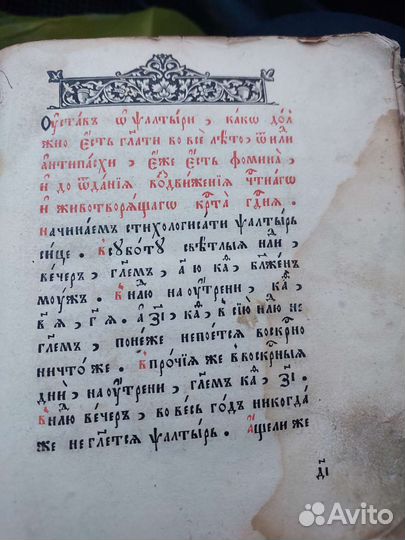 Оу҆ста́въ ѿ ѱалты́ри , ка́кѡ до́л
жно є҆́сть гл҃ати во всѐ лѣ́то , ѿ нⷣли
а҆нтипа́схи , є҆́же є҆́сть ѳомина̀ ,
и҆ до ѿда́нїѧ воздви́женїѧ чⷭ҇тна́гѡ
и҆ животворѧ́щагѡ крⷭ҇та̀ гдⷭ҇нѧ .
Начина́емъ стихоло́гисати ѱалты́рь
си́це . Въ суббо́ту свѣ́тлыѧ нⷣли ,
ве́черъ , гл҃емъ , а҃ ю ка , бл҃же́нъ
мꙋ́жъ . В нⷣлю на оу҆́трени , ка ,
в҃ ѧ , г҃ ѧ . а҆ з҃і ка , в сїю̀ нⷣлю не
гл҃емъ , поне́же непое́тсѧ воскр҃но
ничто́же . В про́чїѧ же в воскр҃ныѧ
дни̑ , на оу҆́трени , гл҃емъ ка , з҃і .
В нⷣлю ве́черъ , во ве́сь го́дъ никогда́
же не гл҃етсѧ ѱалты́рь . А҆́щели же
д҃і
Avito